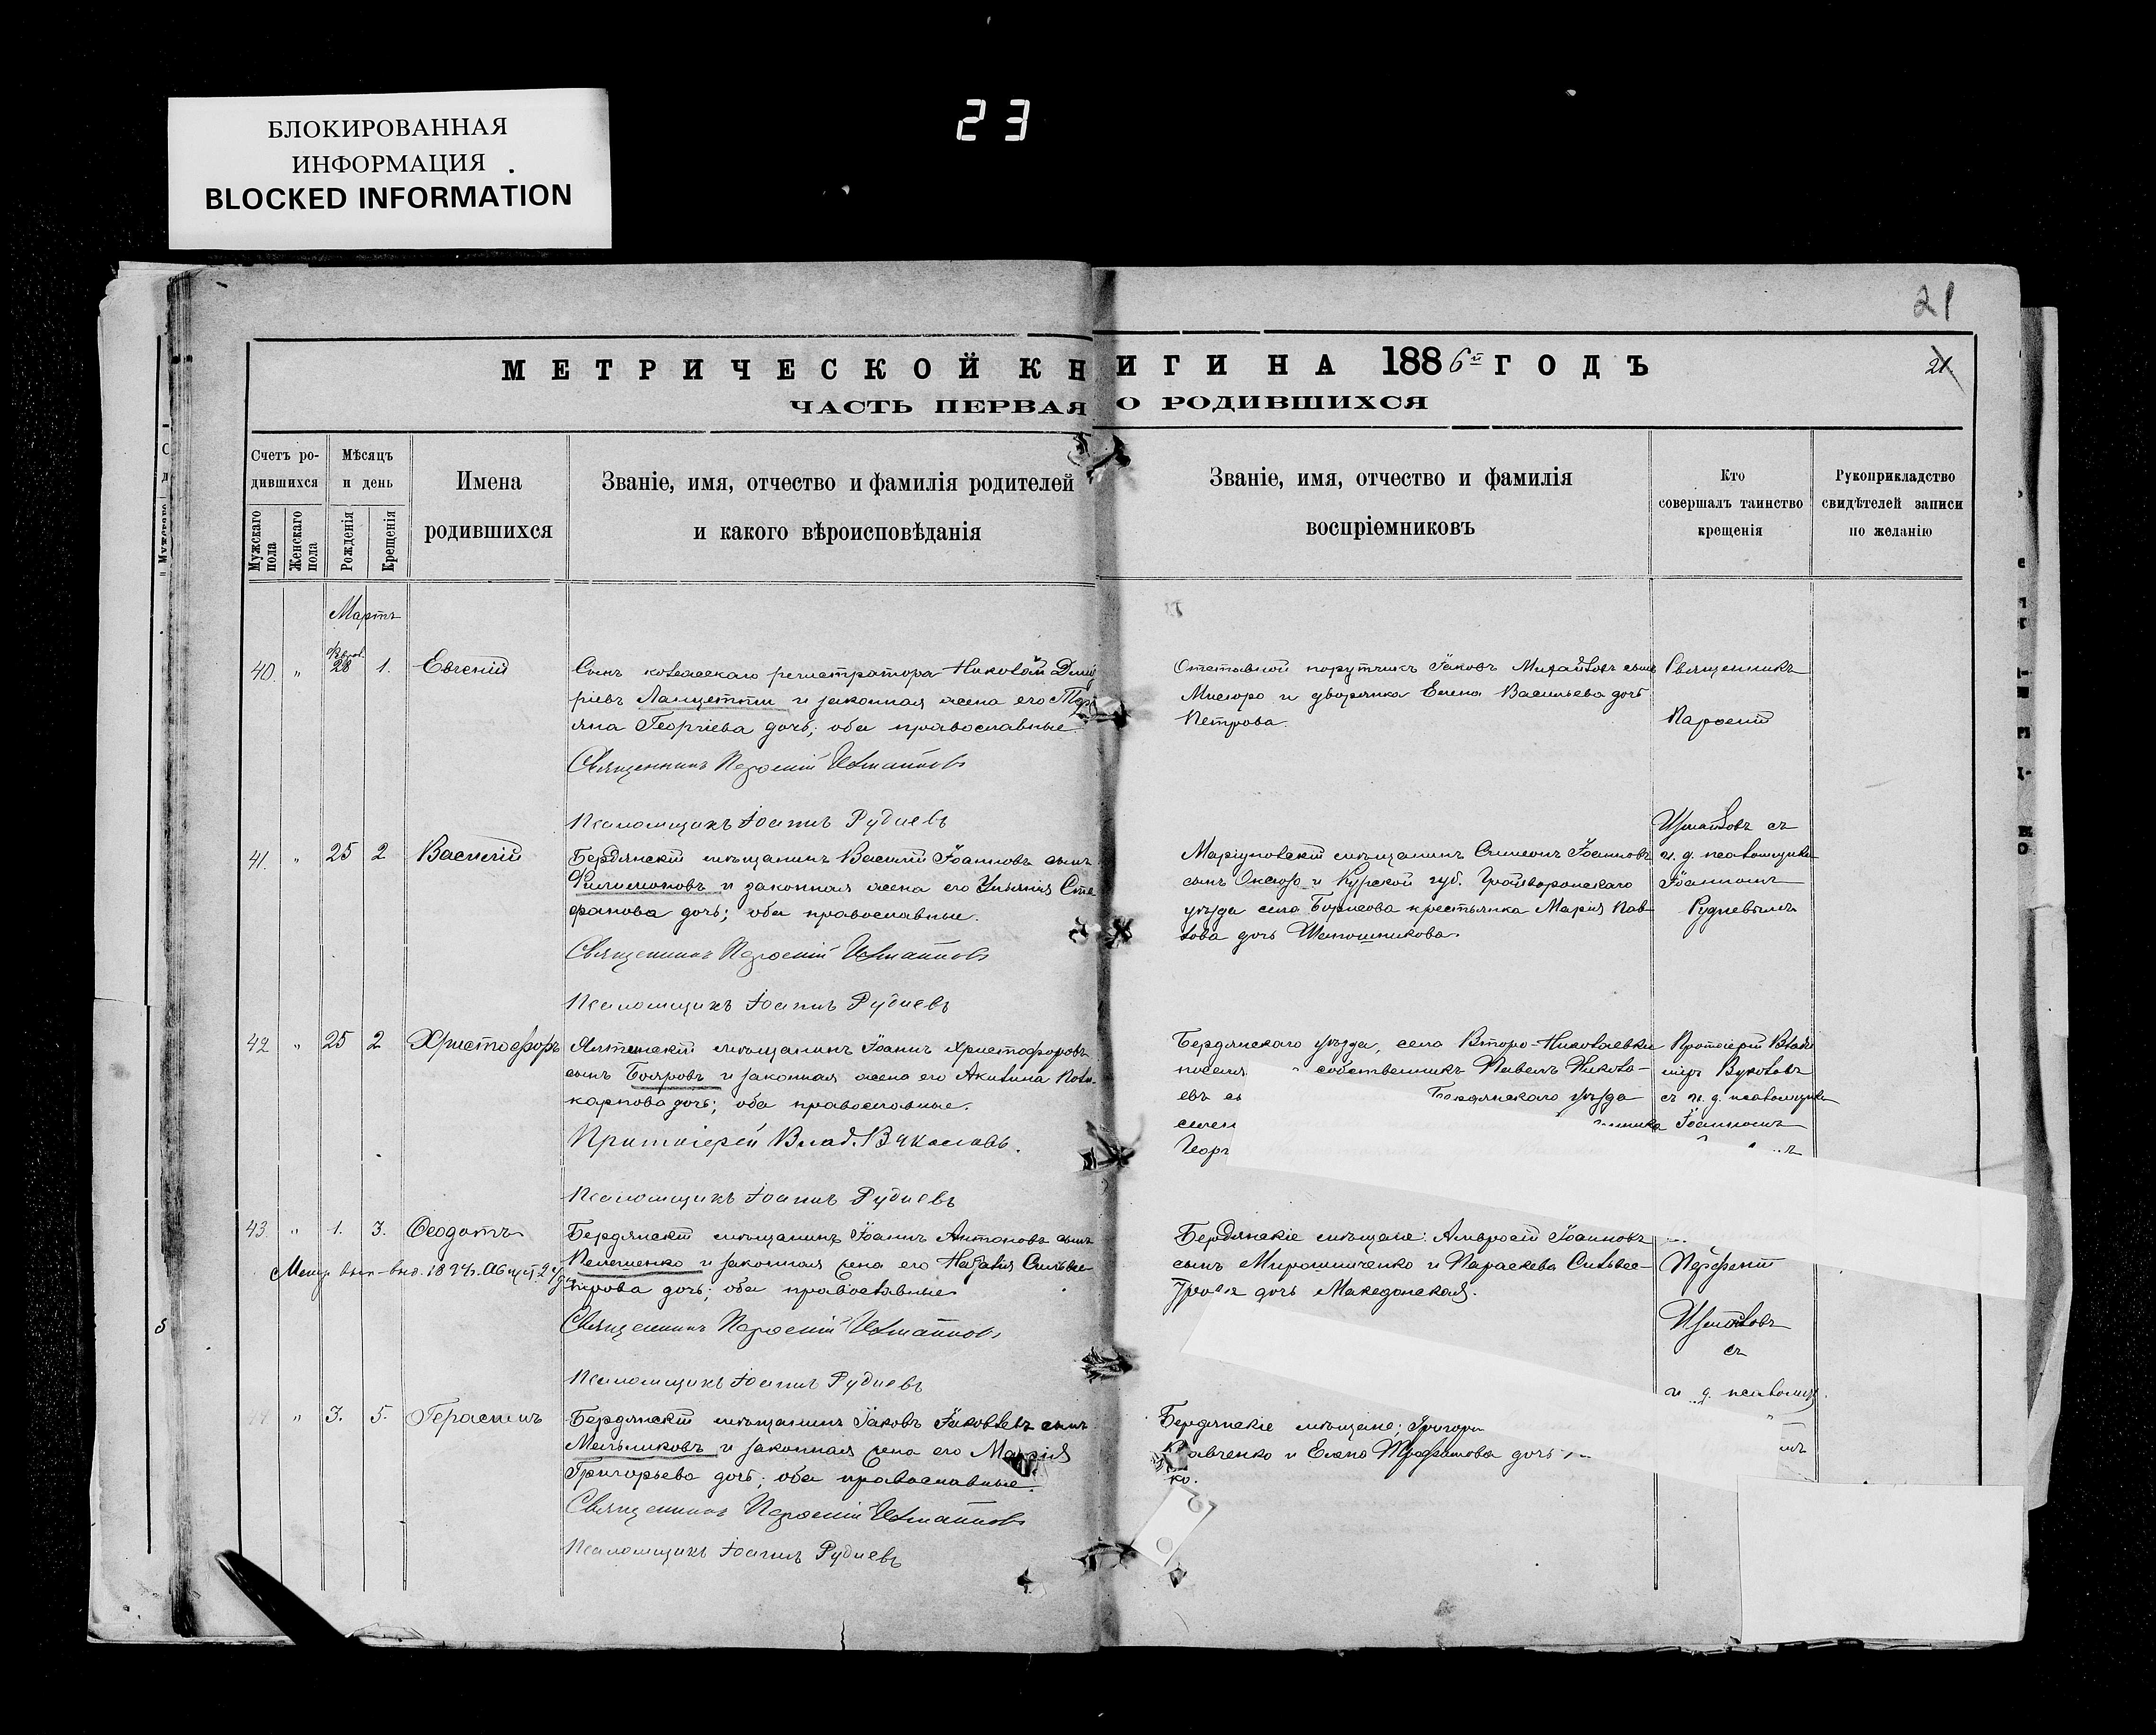 БЛОКИРОВАННАЯ
ИНФОРМАЦИЯ
BLOCKED INFORMATION
23
21
МЕТРИЧЕСКОЙ КНИГИ НА 1886й ГОДЪ
21.
ЧАСТЬ ПЕРВАЯ О РОДИВШИХСЯ
Счетъ ро-
дившихся
Мужскаго пола
Женскаго пола
Мѣсяцъ
и день
Рожденія
Крещенія
Имена
родившихся
Званіе, имя, отчество и фамилія родителей
и какого вѣроисповѣданія
Званіе, имя, отчество и фамилія
воспріемниковъ
Кто
совершалъ таинство
крещенія
Рукоприкладство
свидѣтелей записи
по желанію
Мартъ
40. " 28 1. Евгеній
Сынъ коллежскаго регистратора Николай Дмит
ріевъ и законная жена его
Георгіева дочь; оба православные.
Священникъ
Псаломщикъ Іоаннъ Рудневъ
Отставной поручикъ Іаковъ Михайловъ сынъ
и дворянка Елена Васильева дочь
Петрова.
Священникъ
41. " 25 2 Василій
Бердянскій мѣщанинъ Василій Іоанновъ сынъ
Филимоновъ и законная жена его Ульянія Сте
фанова дочь; оба православные.
Священникъ
Псаломщикъ Іоаннъ Рудневъ
Маріупольскій мѣщанинъ Симеонъ Іоанновъ
сынъ и Курской губ. Грайворонскаго
уѣзда села Борисова крестьянка Марія Пав
лова дочь Шапошникова.
съ
и. д. псаломщика
Іоанномъ
Рудневымъ
42 " 25 2 Христофоръ
мѣщанинъ Іоаннъ Христофоровъ
сынъ Бояровъ и законная жена его Акилина Поли
карпова дочь; оба православные.
Протоіерей Влад. Вуколовъ.
Псаломщикъ Іоаннъ Рудневъ
Бердянскаго уѣзда, села Второ-Николаевки
поселя собственникъ Павелъ Никола-
евъ Бердянскаго уѣзда
Геор
Протоіерей Влади
міръ Вуколовъ
съ и. д. псаломщика
Іоанномъ
43. " 1. 3. Ѳеодотъ
Бердянскій мѣщанинъ Іоаннъ Антоновъ сынъ
и законная жена его Наталія Сильве
строва дочь; оба православные
Священникъ
Псаломщикъ Іоаннъ Рудневъ
Бердянскіе мѣщане: Амвросій Іоанновъ
сынъ Мирошниченко и Параскева Сильвес-
трова дочь Македонская.
съ
и. д. псаломщ.
" 3. 5. Герасимъ
Бердянскій мѣщанинъ Іаковъ Іаковлевъ сынъ
Мельниковъ и законная жена его Марія
Григорьева дочь; оба православные.
Священникъ
Псаломщикъ Іоаннъ Рудневъ
Бердянскіе мѣщане: Григорі
авченко и Елена Трофимова дочь
ко.